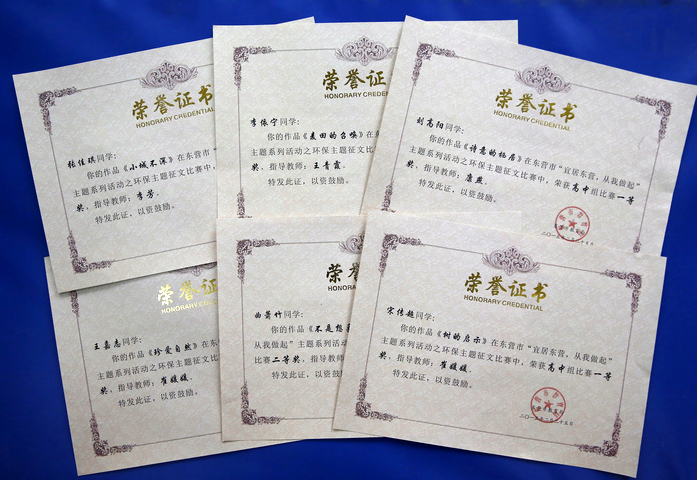 荣誉证书
HONORARY CREDENTIAL
张佳琪同学：
你的作品《小城不深》在东营市“
主题系列活动之环保主题征文比
奖，指导教师：李芳。
特发此证，以资鼓励。
荣誉证
HONORARY CREDEN
李依宁同学：
你的作品《麦田的召唤》在东
主题系列活动之环保主题征文比
奖，指导教师：王青霞。
特发此证，以资鼓励。
荣誉证书
HONORARY CREDENTIAL
刘高阳同学：
你的作品《诗意的栖居》在东营市“宜居东营，从我做起”
主题系列活动之环保主题征文比赛中，荣获高中组比赛一等
奖，指导教师：康燕。
特发此证，以资鼓励。
荣誉
HONORARY CRE
王嘉志同学：
你的作品《珍爱自然》在东
主题系列活动之环保主题征文
奖，指导教师：崔媛媛。
特发此证，以资鼓励。
同学：
你的作品《不是想
从我做起”主题系列活动
比赛二等奖，指导教
特发此证，以资鼓
荣誉证书
HONORARY CREDENTIAL
宋传超同学：
你的作品《树的启示》在东营市“宜居东营，从我做起”
主题系列活动之环保主题征文比赛中，荣获高中组比赛一等
奖，指导教师：崔媛媛。
特发此证，以资鼓励。